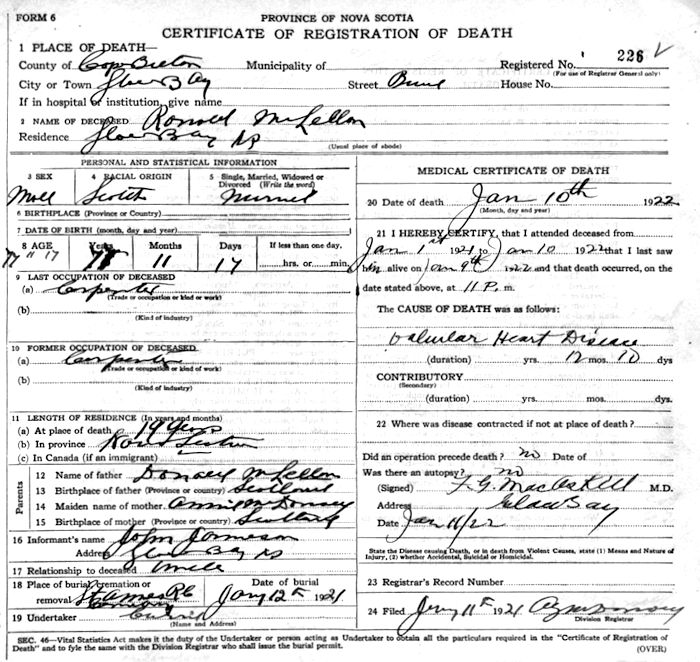 FORM 6
PROVINCE OF NOVA SCOTIA
CERTIFICATE OF REGISTRATION OF DEATH
1 PLACE OF DEATH—
County of Cape Breton Municipality of Registered No. 226
(For use of Registrar General only)
City or Town Glace Bay Street House No.
If in hospital or institution, give name
2 NAME OF DECEASED Ronald McLellan
Residence Glace Bay NS
(Usual place of abode)
PERSONAL AND STATISTICAL INFORMATION
3 SEX 4 RACIAL ORIGIN 5 Single, Married, Widowed or Divorced (Write the word)
Male Scotch Married
6 BIRTHPLACE (Province or Country)
7 DATE OF BIRTH (month, day and year)
8 AGE Years Months Days If less than one day,
77 11 17 11 17 hrs. or min.
9 LAST OCCUPATION OF DECEASED
(a) Carpenter
(Trade or occupation or kind or work)
(b)
(Kind of industry)
10 FORMER OCCUPATION OF DECEASED
(a) Carpenter
(Trade or occupation or kind of work)
(b)
(Kind of industry)
11 LENGTH OF RESIDENCE (In years and months)
(a) At place of death 19 years
(b) In province Nova Scotia
(c) In Canada (if an immigrant)
Parents
12 Name of father Donald McLellan
13 Birthplace of father (Province or country) Scotland
14 Maiden name of mother Annie
15 Birthplace of mother (Province or country) Scotland
16 Informant's name John Jameson
Address Glace Bay NS
17 Relationship to deceased
18 Place of burial, cremation or removal Date of burial
St James Cemetery Jany 12th 1921
19 Undertaker
(Name and Address)
MEDICAL CERTIFICATE OF DEATH
20 Date of death Jan 10th 1922
(Month, day and year)
21 I HEREBY CERTIFY, that I attended deceased from
Jan 1st 1921 to Jan 10 1922 that I last saw
him alive on Jan 9th 1922 and that death occurred, on the
date stated above, at 11 P. m.
The CAUSE OF DEATH was as follows:
Valvular Heart Disease
(duration) yrs. 12 mos. 10 dys
CONTRIBUTORY
(Secondary)
(duration) yrs. mos. dys.
22 Where was disease contracted if not at place of death?
Did an operation precede death? no Date of
Was there an autopsy? no
(Signed) F. G. MacAskill M.D.
Address Glace Bay
Date Jan 11/22
State the Disease causing Death, or in death from Violent Causes, state (1) Means and Nature of
Injury, (2) whether Accidental, Suicidal or Homicidal.
23 Registrar's Record Number
24 Filed Jany 11th 1921
Division Registrar
SEC. 46—Vital Statistics Act makes it the duty of the Undertaker or person acting as Undertaker to obtain all the particulars required in the "Certificate of Registration of
Death" and to fyle the same with the Division Registrar who shall issue the burial permit.
(OVER)